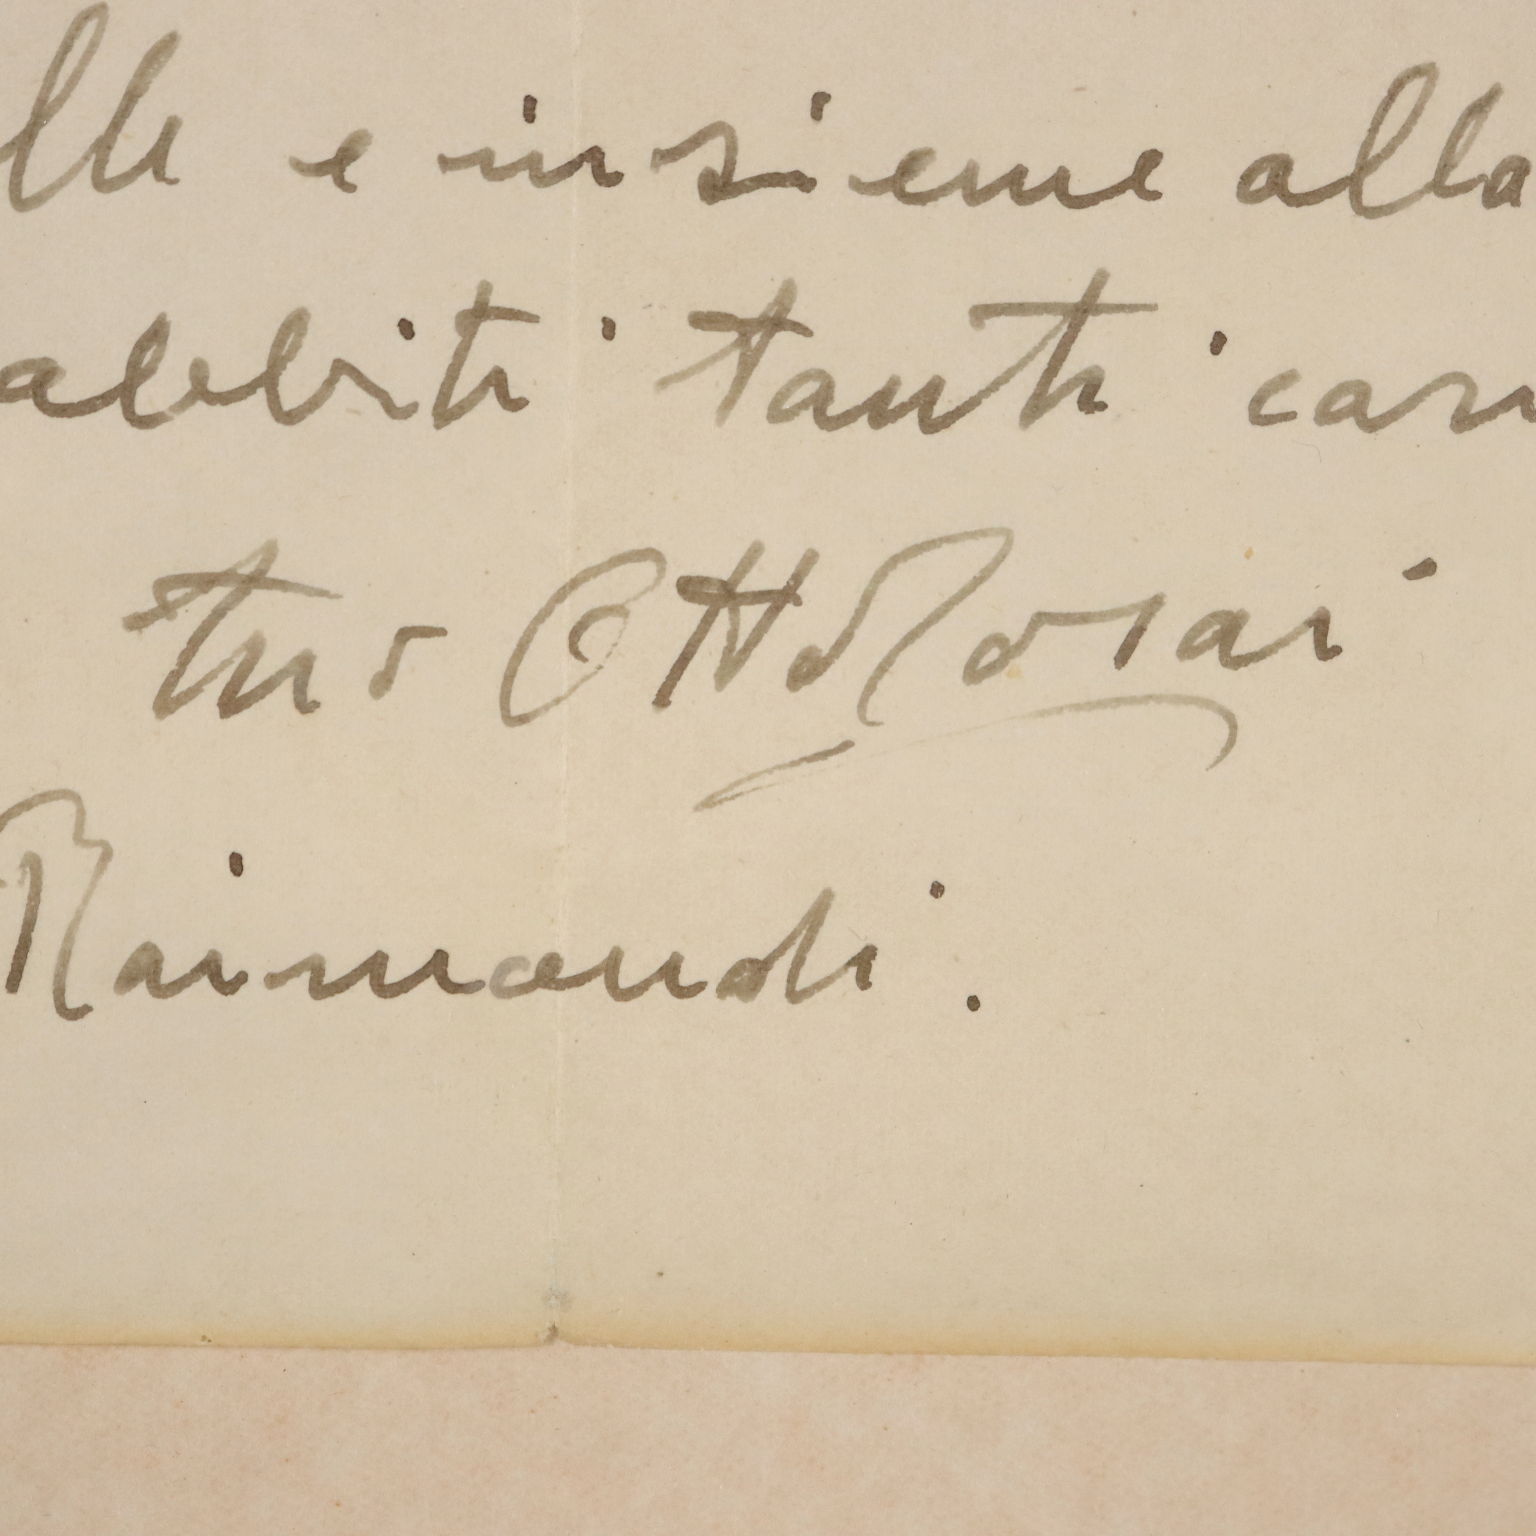 lli e insieme alla
abbiti tanti cari
tuo Ott Rosai
Raimondi.